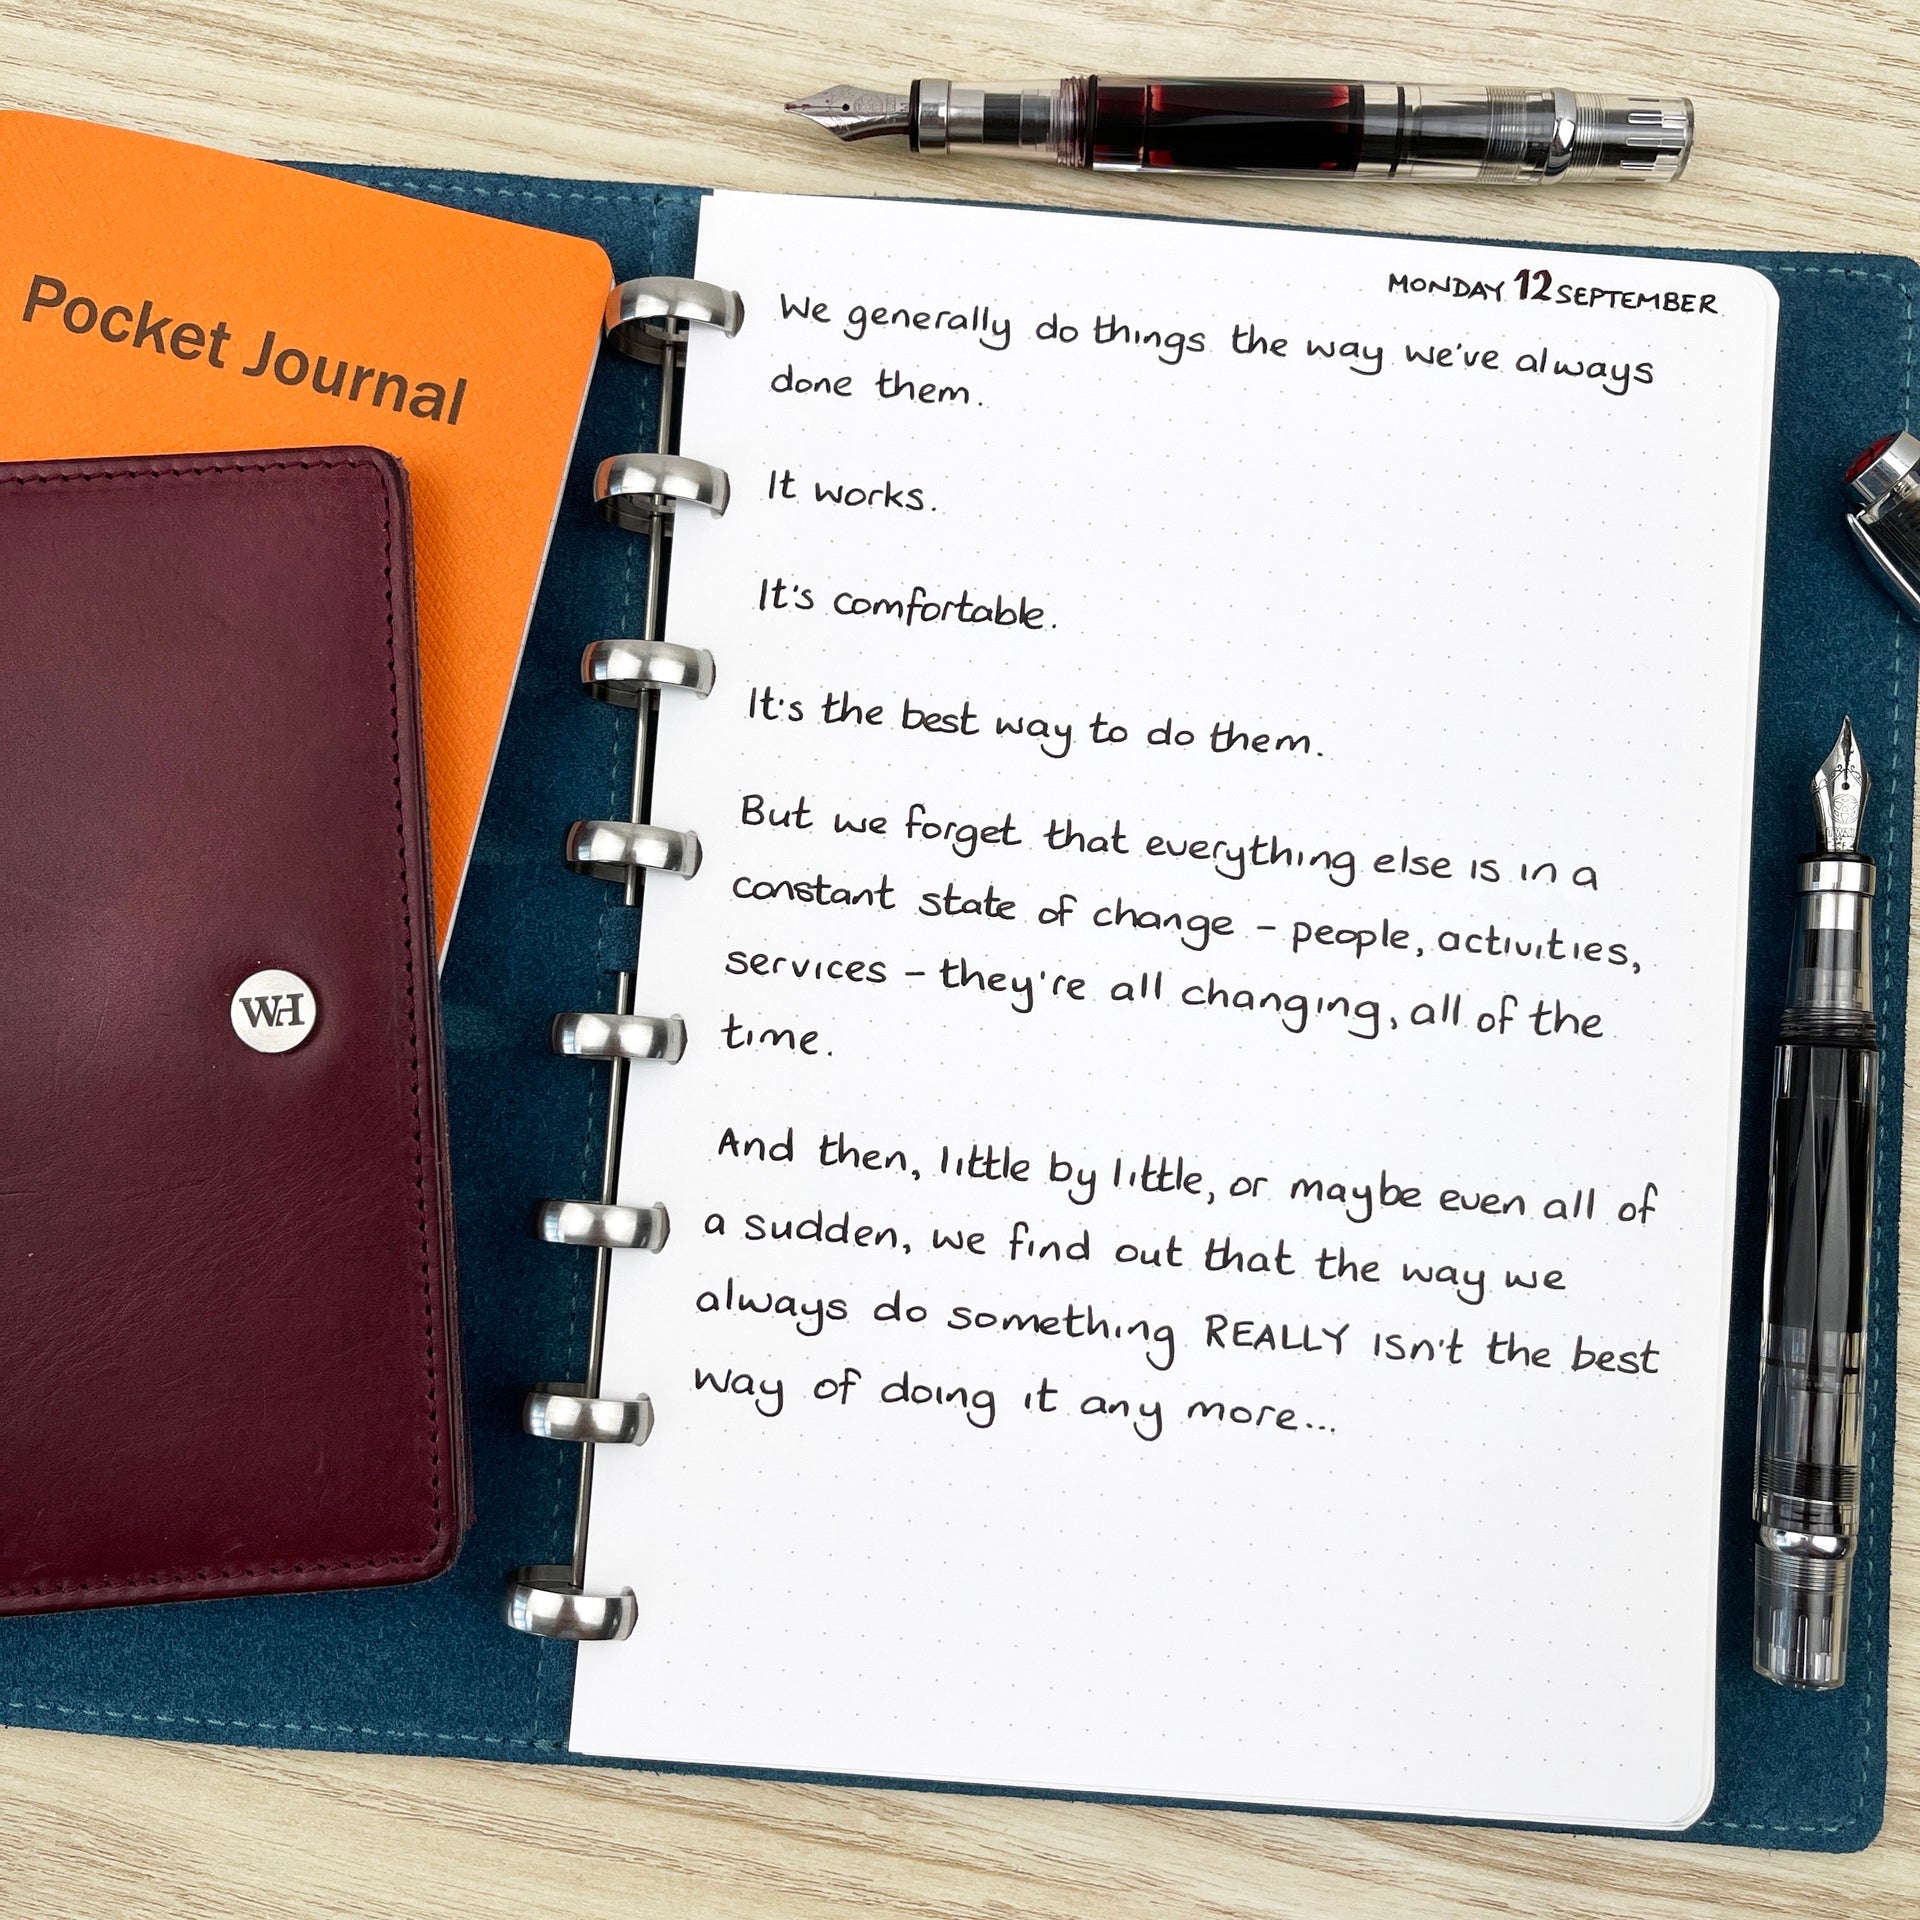 Pocket Journal
WH
MONDAY 12 SEPTEMBER
We generally do things the way we've always
done them.
It works.
It's comfortable.
It's the best way to do them.
But we forget that everything else is in a
constant state of change – people, activities,
services – they're all changing, all of the
time.
And then, little by little, or maybe even all of
a sudden, we find out that the way we
always do something REALLY isn't the best
way of doing it any more...